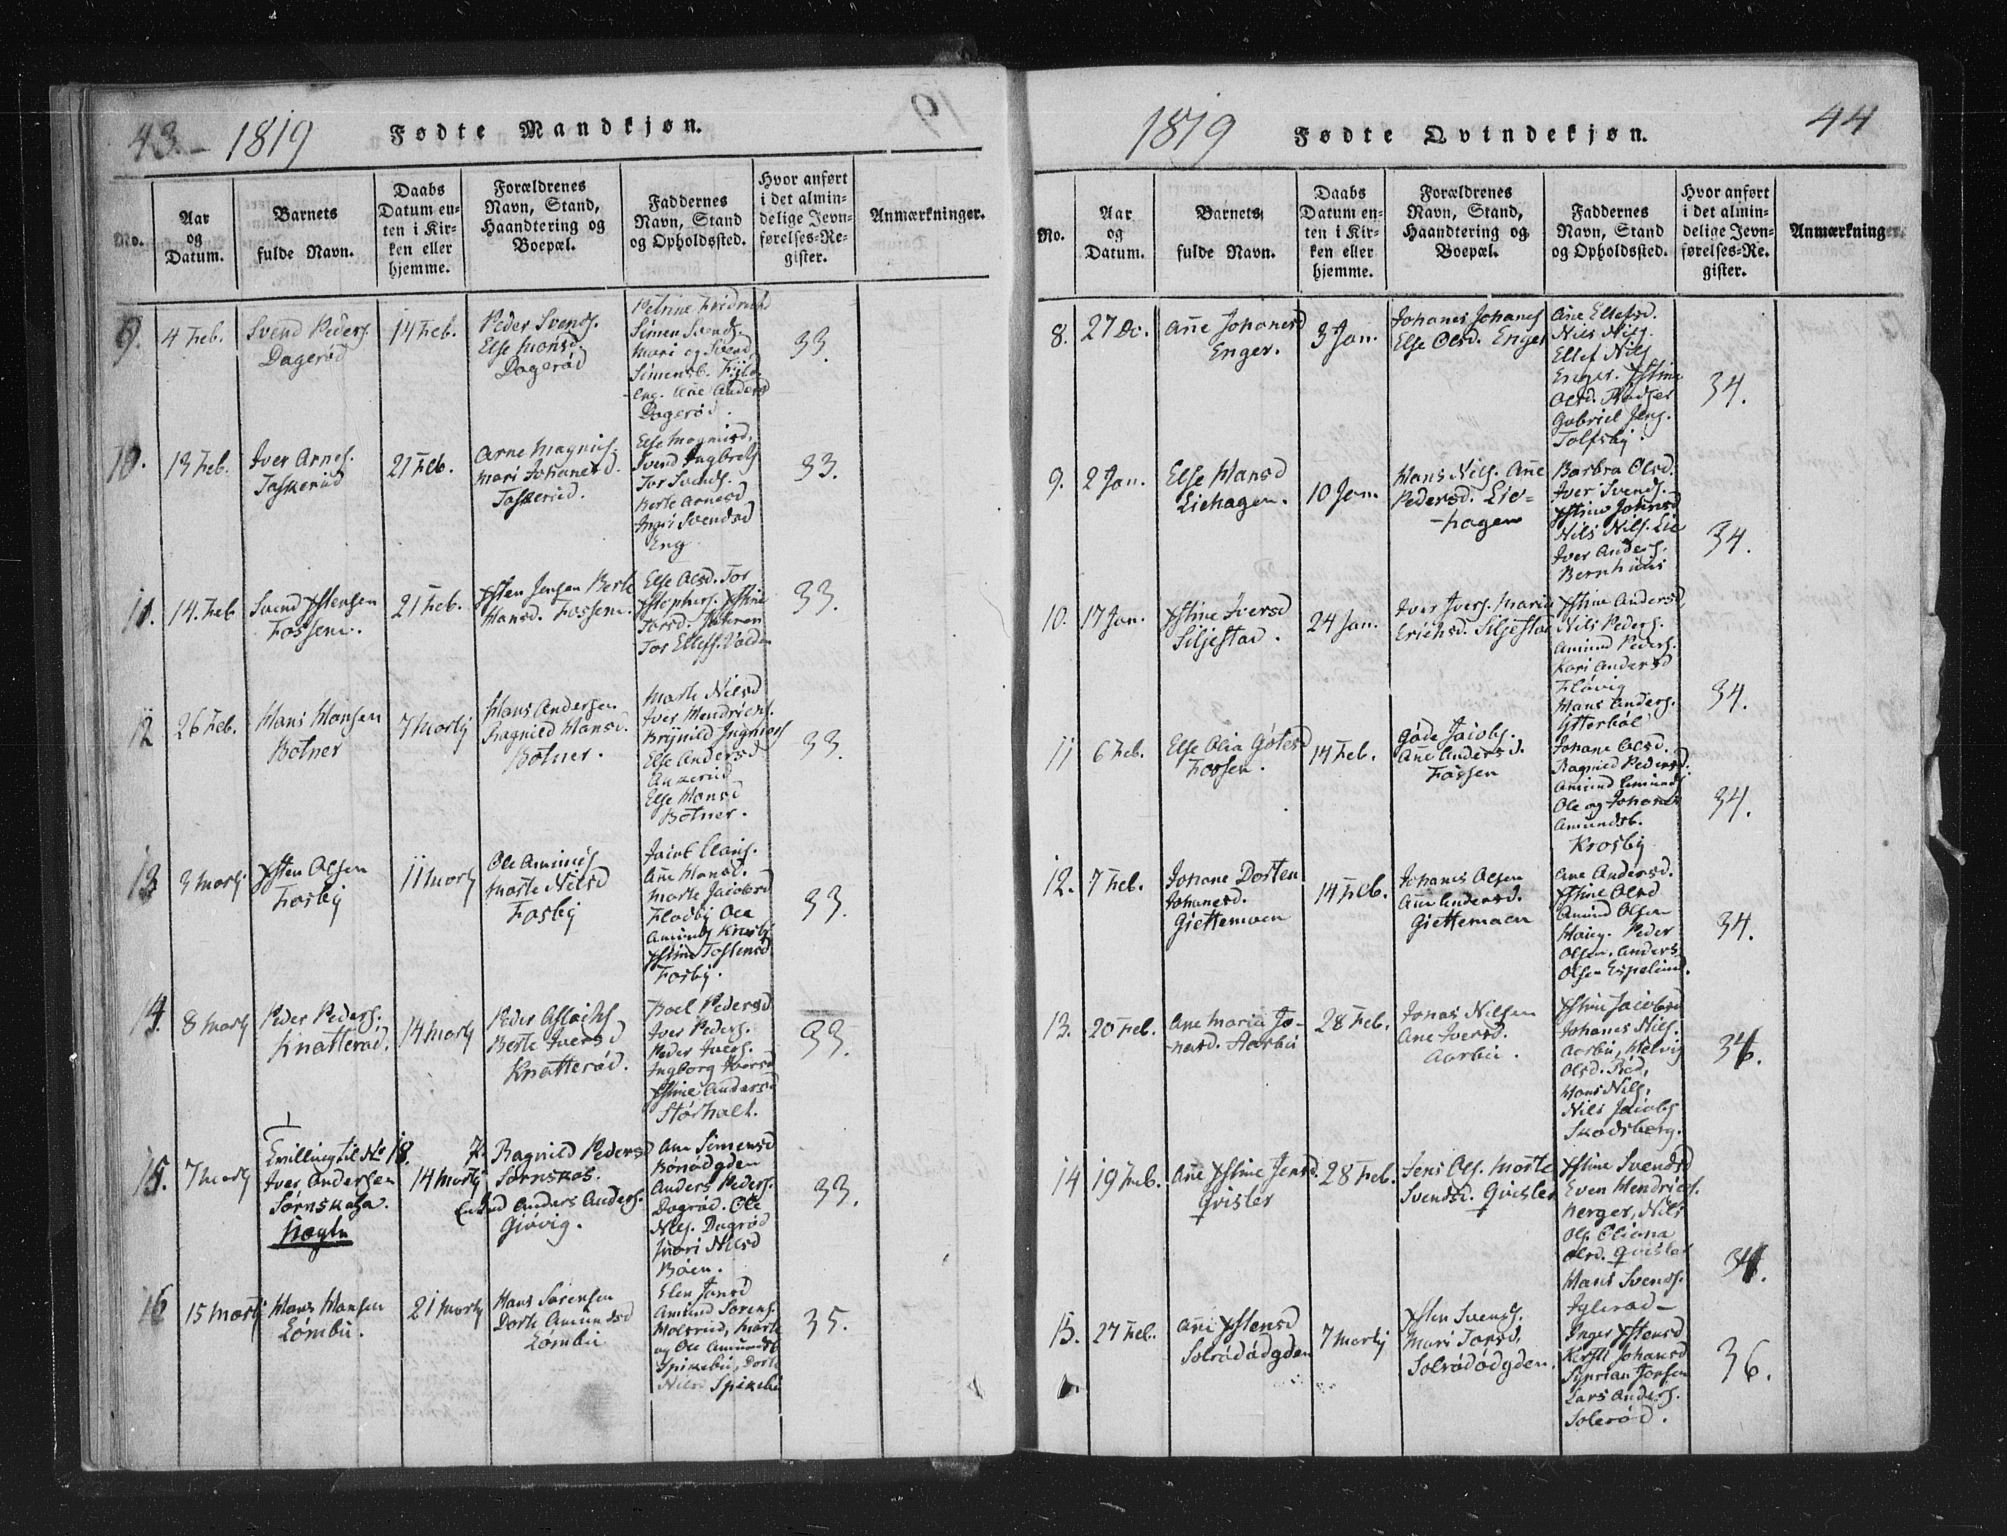 43.
1819
Fødte Mandkjøn.
No.
Aar
og
Datum.
Barnets
fulde Navn.
Daabs
Datum en-
ten i Kir-
ken eller
hjemme.
Forældrenes
Navn, Stand,
Haandtering og
Boepæl.
Faddernes
Navn, Stand
og Opholdssted.
Hvor anført
i det almin-
delige Jevn-
førelses-Re-
gister.
Anmærkninger.
9.
4 Feb.
Svend Peders.
Dagerød
14 Feb.
Peder Svends.
Else Mónsd.
Dagerød
Simen Svends.
Mari og Svend
Anders
Dagerød.
33.
10.
13 Feb.
Iver Arnes.
Taskerud
21 Feb.
Arne Magnus.
Mari Johanesd.
Taskerud.
Else Magnusd.
Svend
Tor Svends.
Berte Arnesd
Inger Svendsd
Eng
33.
11.
14 Feb
Svend Xstensen
Fossem.
21 Feb.
Xsten Jensen Berte
Hansd. Fossem.
Else Olsd. Tor
Xstophers. Xstine
Torsd.
Tor Ellefs.
33.
12
26 Feb.
Hans Hansen
Botner
7 Martj
Hans Andersen
Ragnild Hansd.
Botner.
Marte Nilsd
Iver Hendrichs.
Brynild
Else Andersd
Else Hansd
Botner.
33.
13
3 Martj
Xsten Olsen
Fosby
11 Martj
Ole Amunds.
Marte Nilsd
Fosby
Jacob Claus.
Ane Hansd.
Marte Jacobsd
Fladby Ole
Amunds Krosby
Xstine Tostensd
Fosby.
33.
14.
8 Martj
Peder Peders.
Knatterød.
14 Martj
Peder Aslachs.
Berte Iversd
Knatterød.
Boel Pedersd
Iver Peders.
Peder Ivers.
Ingborg Iversd
Xstine Andersd
Størhalt.
33.
15.
7 Martj
Tvilling til No 18.
Iver Andersen
Tørnskaga.
Uægte
14 Martj
Ragnild Pedersd
Tørnskog.
Anders Anders.
Gjøvig.
Ane Simensd
Anders Peders.
Dagrød. Ole
Nils. Dagrød
Mari Nilsd
Bøen.
33.
16
15 Martj
Hans Hansen
Lømbu.
21 Martj
Hans Sørensen
Dorte Amundsd
Lømbu
Elen Jansd
Amund Sørens.
Holsrud, Marte
og Ole Amundsb.
Spikebu, Dorte
Nils. Spikebu
35.
1819
Fødte Qvindekjøn.
44
No.
Aar
og
Datum.
Barnets
fulde Navn.
Daabs
Datum en-
ten i Kir-
ken eller
hjemme.
Forældrenes
Navn, Stand,
Haandtering og
Boepæl.
Faddernes
Navn, Stand
og Opholdssted.
Hvor anført
i det almin-
delige Jevn-
førelses-Re-
gister.
Anmærkninger.
8.
27 Dc.
Ane Johanesd
Enger.
3 Jan.
Johanes Johanes
Else Olsd. Enger
Ane Ellefsd.
Nils Nils.
Ellef Nils
Enger. Xstine
Olsd.
Gabriel Jens.
Tolfsby.
34.
9.
2 Jan.
Else Hansd
Liehagen.
10 Jan.
Hans Nils. Ane
Pedersd. Lie-
-hagen
Barbra Olsd.
Iver Svends.
Xstine Johnsd
Nils Nils. Lie
Iver Anders.
Bernhuus
34.
10.
17 Jan.
Xstine Iversd
Siljestad.
24 Jan.
Iver Ivers. Maria
Erichsd. Siljestad
Xstine Andersd.
Nils Peders.
Amund Peders.
Kari Andersd
Fløvig
Hans Anders.
Ytterbøl
34.
11
6 Feb.
Else Olia Gótesd
Fossen.
14 Feb.
Gøde Jacobs.
Ane Andersd.
Fossen
Johane Olsd.
Ragnild Pedersd.
Amund Emunds
Ole og Johanes
Amundsb.
Krosby
34.
12.
7 Feb.
Johane Dorten
Johanesd.
Giettemoen
14 Feb.
Johanes Olsen
Ane Andersd.
Giettemoen
Ane Andersd.
Xstine Olsd
Amund Olsen
Haug. Peder
Olsen, Anders
Olsen Espelund.
34.
13.
20 Feb.
Ane Maria Jo-
nasd. Aarbu
28 Feb.
Jonas Nilsen
Ane Iversd.
Aarbu.
Xstine Jacobsd
Johanes Nils.
Aarbu, Helvig
Olsd. Rød,
Hans Nils,
Nils Jacobs.
Skodsberg.
34.
14
19 Feb.
Ane Xstine Jensd.
Qvisler
28 Feb.
Jens Ols. Marte
Svendsd. Qvisler
Xstine Svendsd
Even Hendrichs.
Herger, Nils
Ols. Eliana
Olsd. Qvisler
Hans Svends.
34.
15.
27 Feb.
Ane Xstensd
Solrødødgden
7 Martj
Xsten Svends.
Mari Torsd.
Solrødødgden.
Inger Xstensd
Kersti Johansd
Syprian Jonsen
Lars Anders.
Solerød.
36.